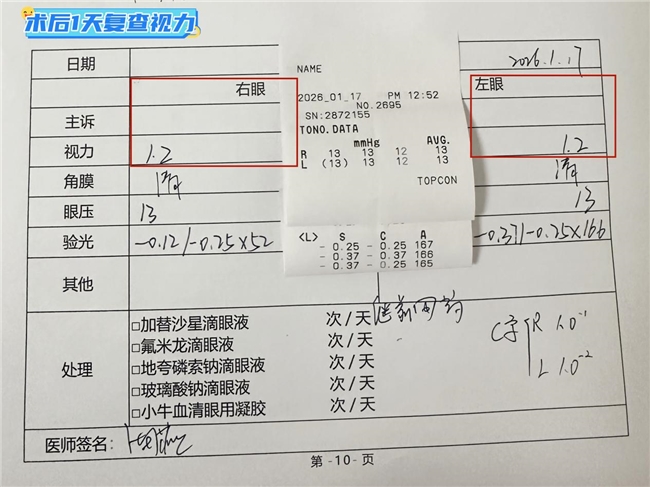 术后1天复查视力
日期
2026.1.17
右眼
左眼
主诉
视力
1.2
1.2
角膜
清
清
眼压
13
13
验光
-0.12/-0.25×52
-0.37/-0.25×166
其他
处理
□加替沙星滴眼液 次/天
□氟米龙滴眼液 次/天
□地夸磷索钠滴眼液 次/天
□玻璃酸钠滴眼液 次/天
□小牛血清眼用凝胶 次/天
R 1.0⁻¹
L 1.0⁻²
医师签名:
第-10-页
NAME
2026_01_17 PM 12:52
NO.2695
SN:2872155
TONO.DATA
mmHg AVG.
R 13 13 12 13
L (13) 13 12 13
TOPCON
<L> S C A
- 0.25 - 0.25 167
- 0.37 - 0.37 166
- 0.37 - 0.25 165